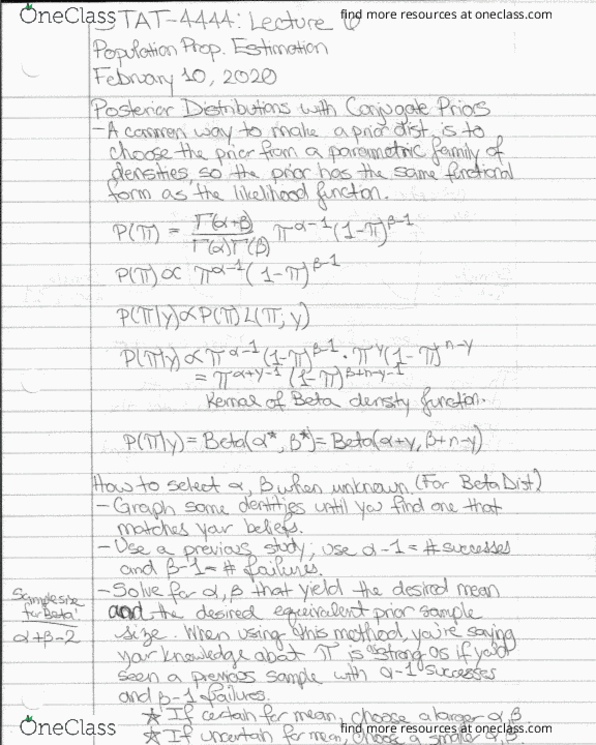 OneClass
find more resources at oneclass.com
STAT-4444: Lecture 6
Population Prop. Estimation
February 10, 2020
Posterior Distributions with Conjugate Priors
- A common way to make a prior dist. is to
choose the prior from a parametric family of
densities, so the prior has the same functional
form as the likelihood function.
P(π) = Γ(α+β) / Γ(α)Γ(β) π^α-1 (1-π)^β-1
P(π) ∝ π^α-1 (1-π)^β-1
P(π|y) ∝ P(π) L(π, y)
P(π|y) ∝ π^α-1 (1-π)^β-1 · π^y (1-π)^n-y
= π^α+y-1 (1-π)^β+n-y-1
Kernal of Beta density function.
P(π|y) = Beta(α*, β*) = Beta(α+y, β+n-y)
How to select α, β when unknown. (For Beta Dist)
- Graph some dentities until you find one that
matches your beliefs.
- Use a previous study; use α-1 = # successes
and β-1 = # failures.
- Solve for α, β that yield the desired mean
and the desired equivalent prior sample
size. When using this method, you're saying
your knowledge about π is as strong as if you'd
seen a previous sample with α-1 successes
and β-1 failures.
Sample size
for Beta:
α+β-2
☆ If certain for mean, choose a larger α, β
☆ If uncertain for mean, choose a smaller α, β
OneClass
find more resources at oneclass.com